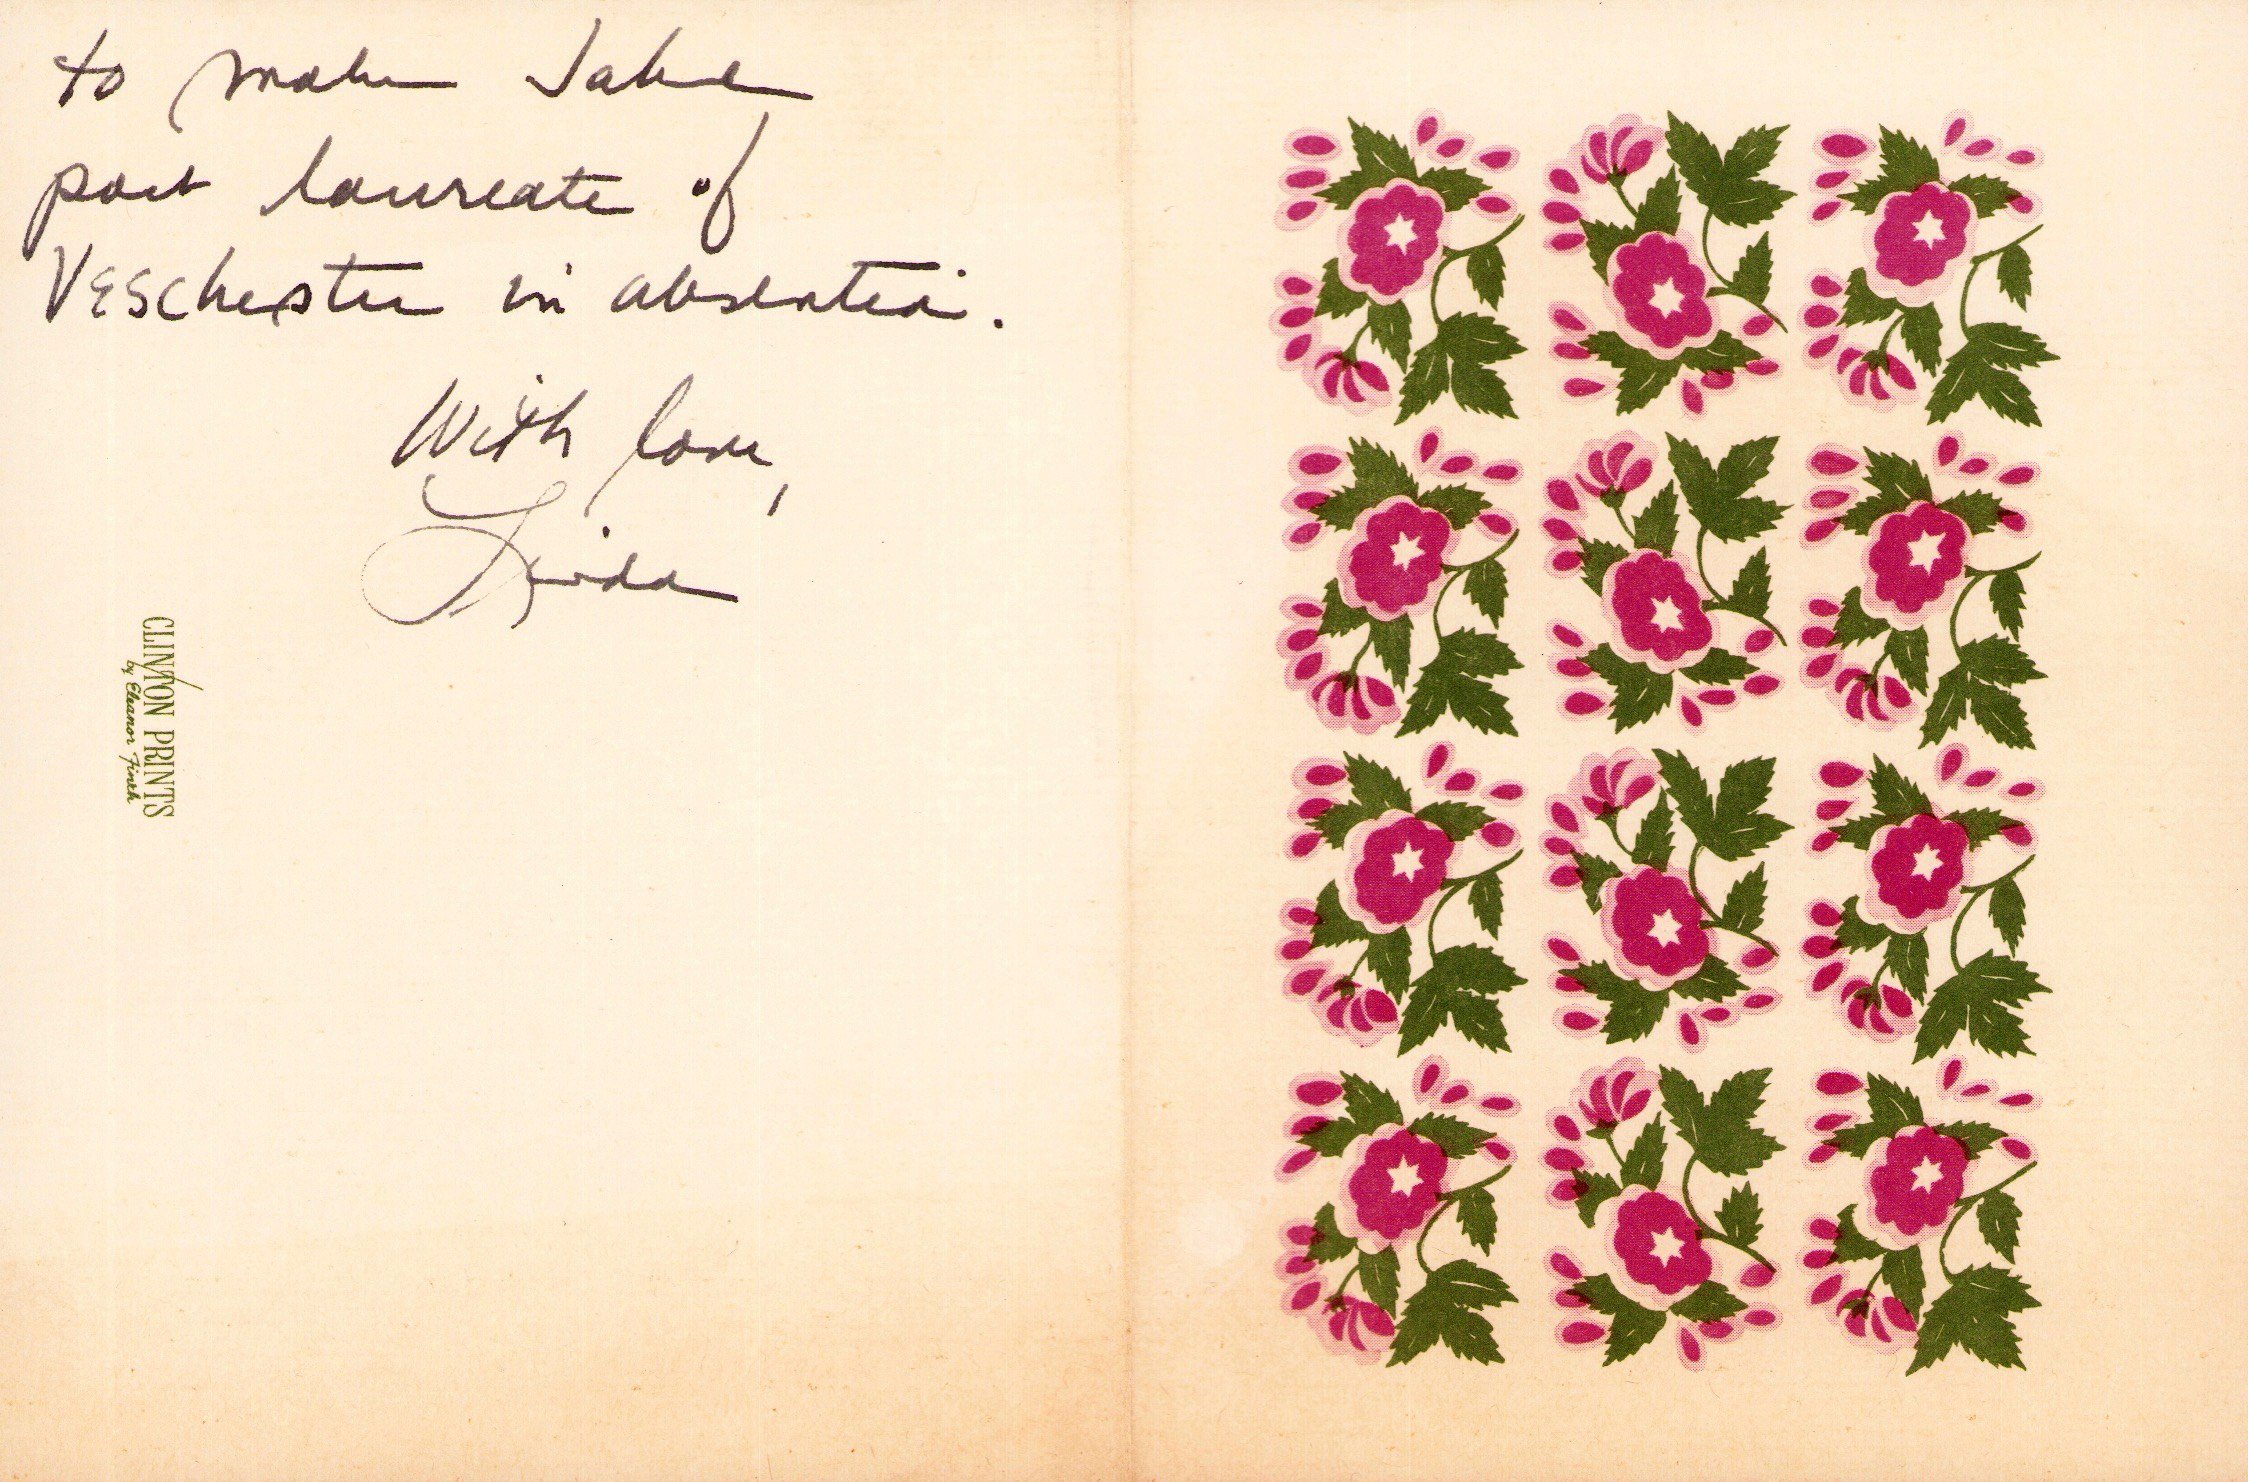 to make Jake
poet laureate of
Veschester in absentia.
With love,
Linda
CLINTON PRINTS
by Eleanor Finch